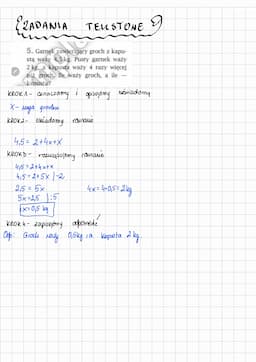 ZADANIA TEKSTOWE
5. Garnek zawierający groch z kapu-
stą waży 4,5 kg. Pusty garnek waży
2 kg, a kapusta waży 4 razy więcej
niż groch. Ile waży groch, a ile —
kapusta?
KROK 1- oznaczamy i opisujemy niewiadomą
X- waga grochu
KROK 2- układamy równanie
4,5 = 2+4x+x
KROK 3- rozwiązujemy równanie
4,5 = 2+4x+x
4,5 = 2+5x |-2
2,5 = 5x 4x = 4·0,5 = 2kg
5x = 2,5 |:5
x = 0,5 kg
KROK 4- zapisujemy odpowiedź
Odp. Groch waży 0,5kg a kapusta 2 kg.